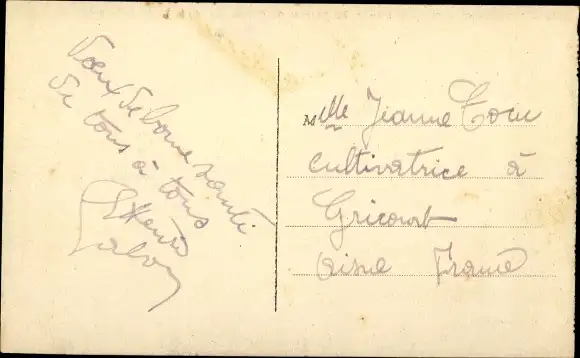 Vœux de bonne santé
de tous à tous
Henri
Mlle Jeanne Cocu
cultivatrice à
Gricourt
aisne France